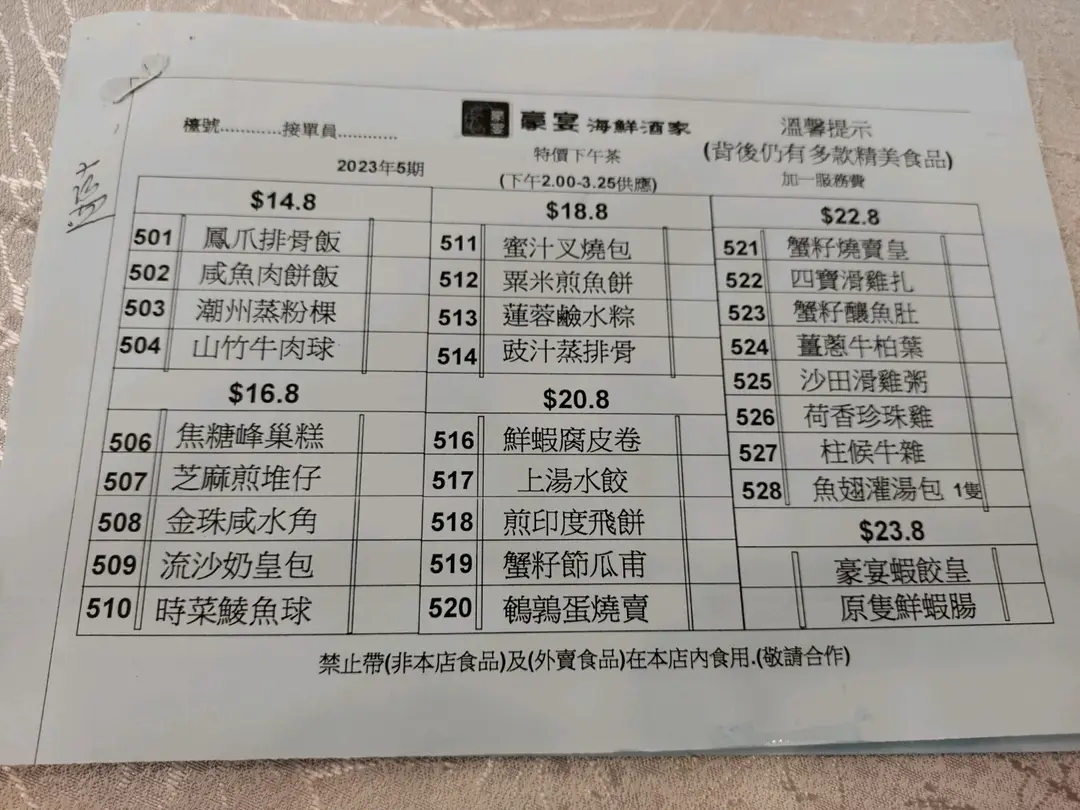 豪宴 海鮮酒家
檯號............接單員............
溫馨提示
2023年5期
特價下午茶
(背後仍有多款精美食品)
(下午2.00-3.25供應)
加一服務費
$14.8
501 鳳爪排骨飯
502 咸魚肉餅飯
503 潮州蒸粉粿
504 山竹牛肉球
$16.8
506 焦糖峰巢糕
507 芝麻煎堆仔
508 金珠咸水角
509 流沙奶皇包
510 時菜鯪魚球
$18.8
511 蜜汁叉燒包
512 粟米煎魚餅
513 蓮蓉鹼水粽
514 豉汁蒸排骨
$20.8
516 鮮蝦腐皮卷
517 上湯水餃
518 煎印度飛餅
519 蟹籽節瓜甫
520 鵪鶉蛋燒賣
$22.8
521 蟹籽燒賣皇
522 四寶滑雞扎
523 蟹籽釀魚肚
524 薑蔥牛柏葉
525 沙田滑雞粥
526 荷香珍珠雞
527 柱候牛雜
528 魚翅灌湯包 1隻
$23.8
豪宴蝦餃皇
原隻鮮蝦腸
禁止帶(非本店食品)及(外賣食品)在本店內食用.(敬請合作)